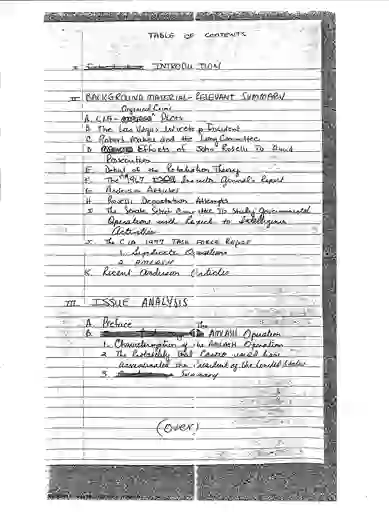 TABLE OF CONTENTS
I. INTRODUCTION
II BACKGROUND MATERIAL - RELEVANT SUMMARY
Organized Crime
A. CIA - Plots
B The Las Vegas Wiretap Incident
C. Robert Maheu and the Long Committee
D Efforts of John Roselli To Avoid
Prosecution
E Debut of the Retaliation Theory
F The 1967 Inspector General's Report
G Anderson Articles
H Roselli Deportation Attempts
I The Senate Select Committee To Study Governmental
Operations with Respect to Intelligence
Activities
J. The CIA 1977 TASK FORCE REPORT
1. Syndicate Operations
2. AMLASH
K. Recent Anderson Articles
III. ISSUE ANALYSIS
A. Preface
B. The AMLASH Operation
1. Characterization of the AMLASH Operation
2 The Probability that Castro would have
Assassinated the President of the United States
3. Summary
(over)